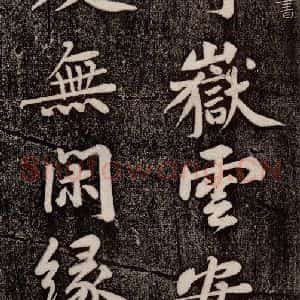 書
嶽雲安
無閑緣
Shufawang.CN